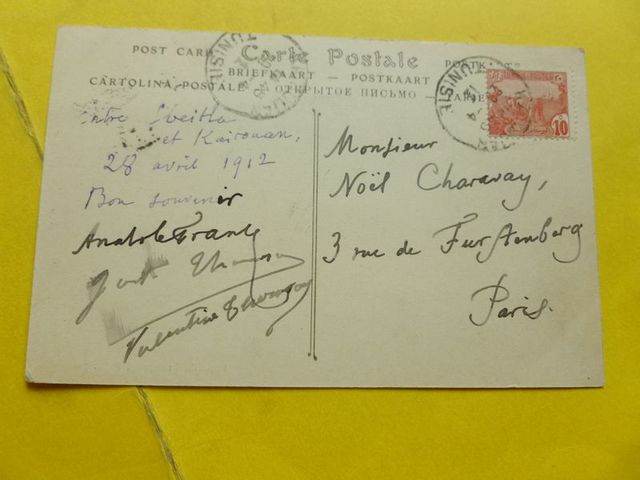 POST CARD Carte Postale
BRIEFKAART — POSTKAART
CARTOLINA POSTALE ОТКРЫТОЕ ПИСЬМО
TUNISIE
TUNISIE
10
Entre Sbeitla
et Kairouan,
28 avril 1912
Bon souvenir
Anatole France
Valentine
Monsieur
Noël Charavay,
3 rue de Furstenberg
Paris.